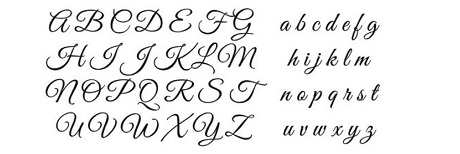 A B C D E F G a b c d e f g
H I J K L M h i j k l m
N O P Q R S T n o p q r s t
U V W X Y Z u v w x y z